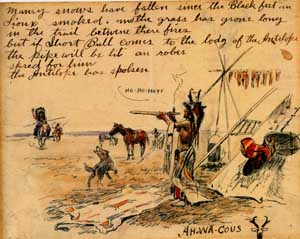 Many snows have fallen since the Blackfeet in
Sioux smoked. and the grass has grone long
in the trail between there fires
but if Short Bull comes to the lodg of the Antilope
the pipe will be lit an robes
spred for him
the Antilope has spoken
HO-HO-HOW!
AH-WA-COUS